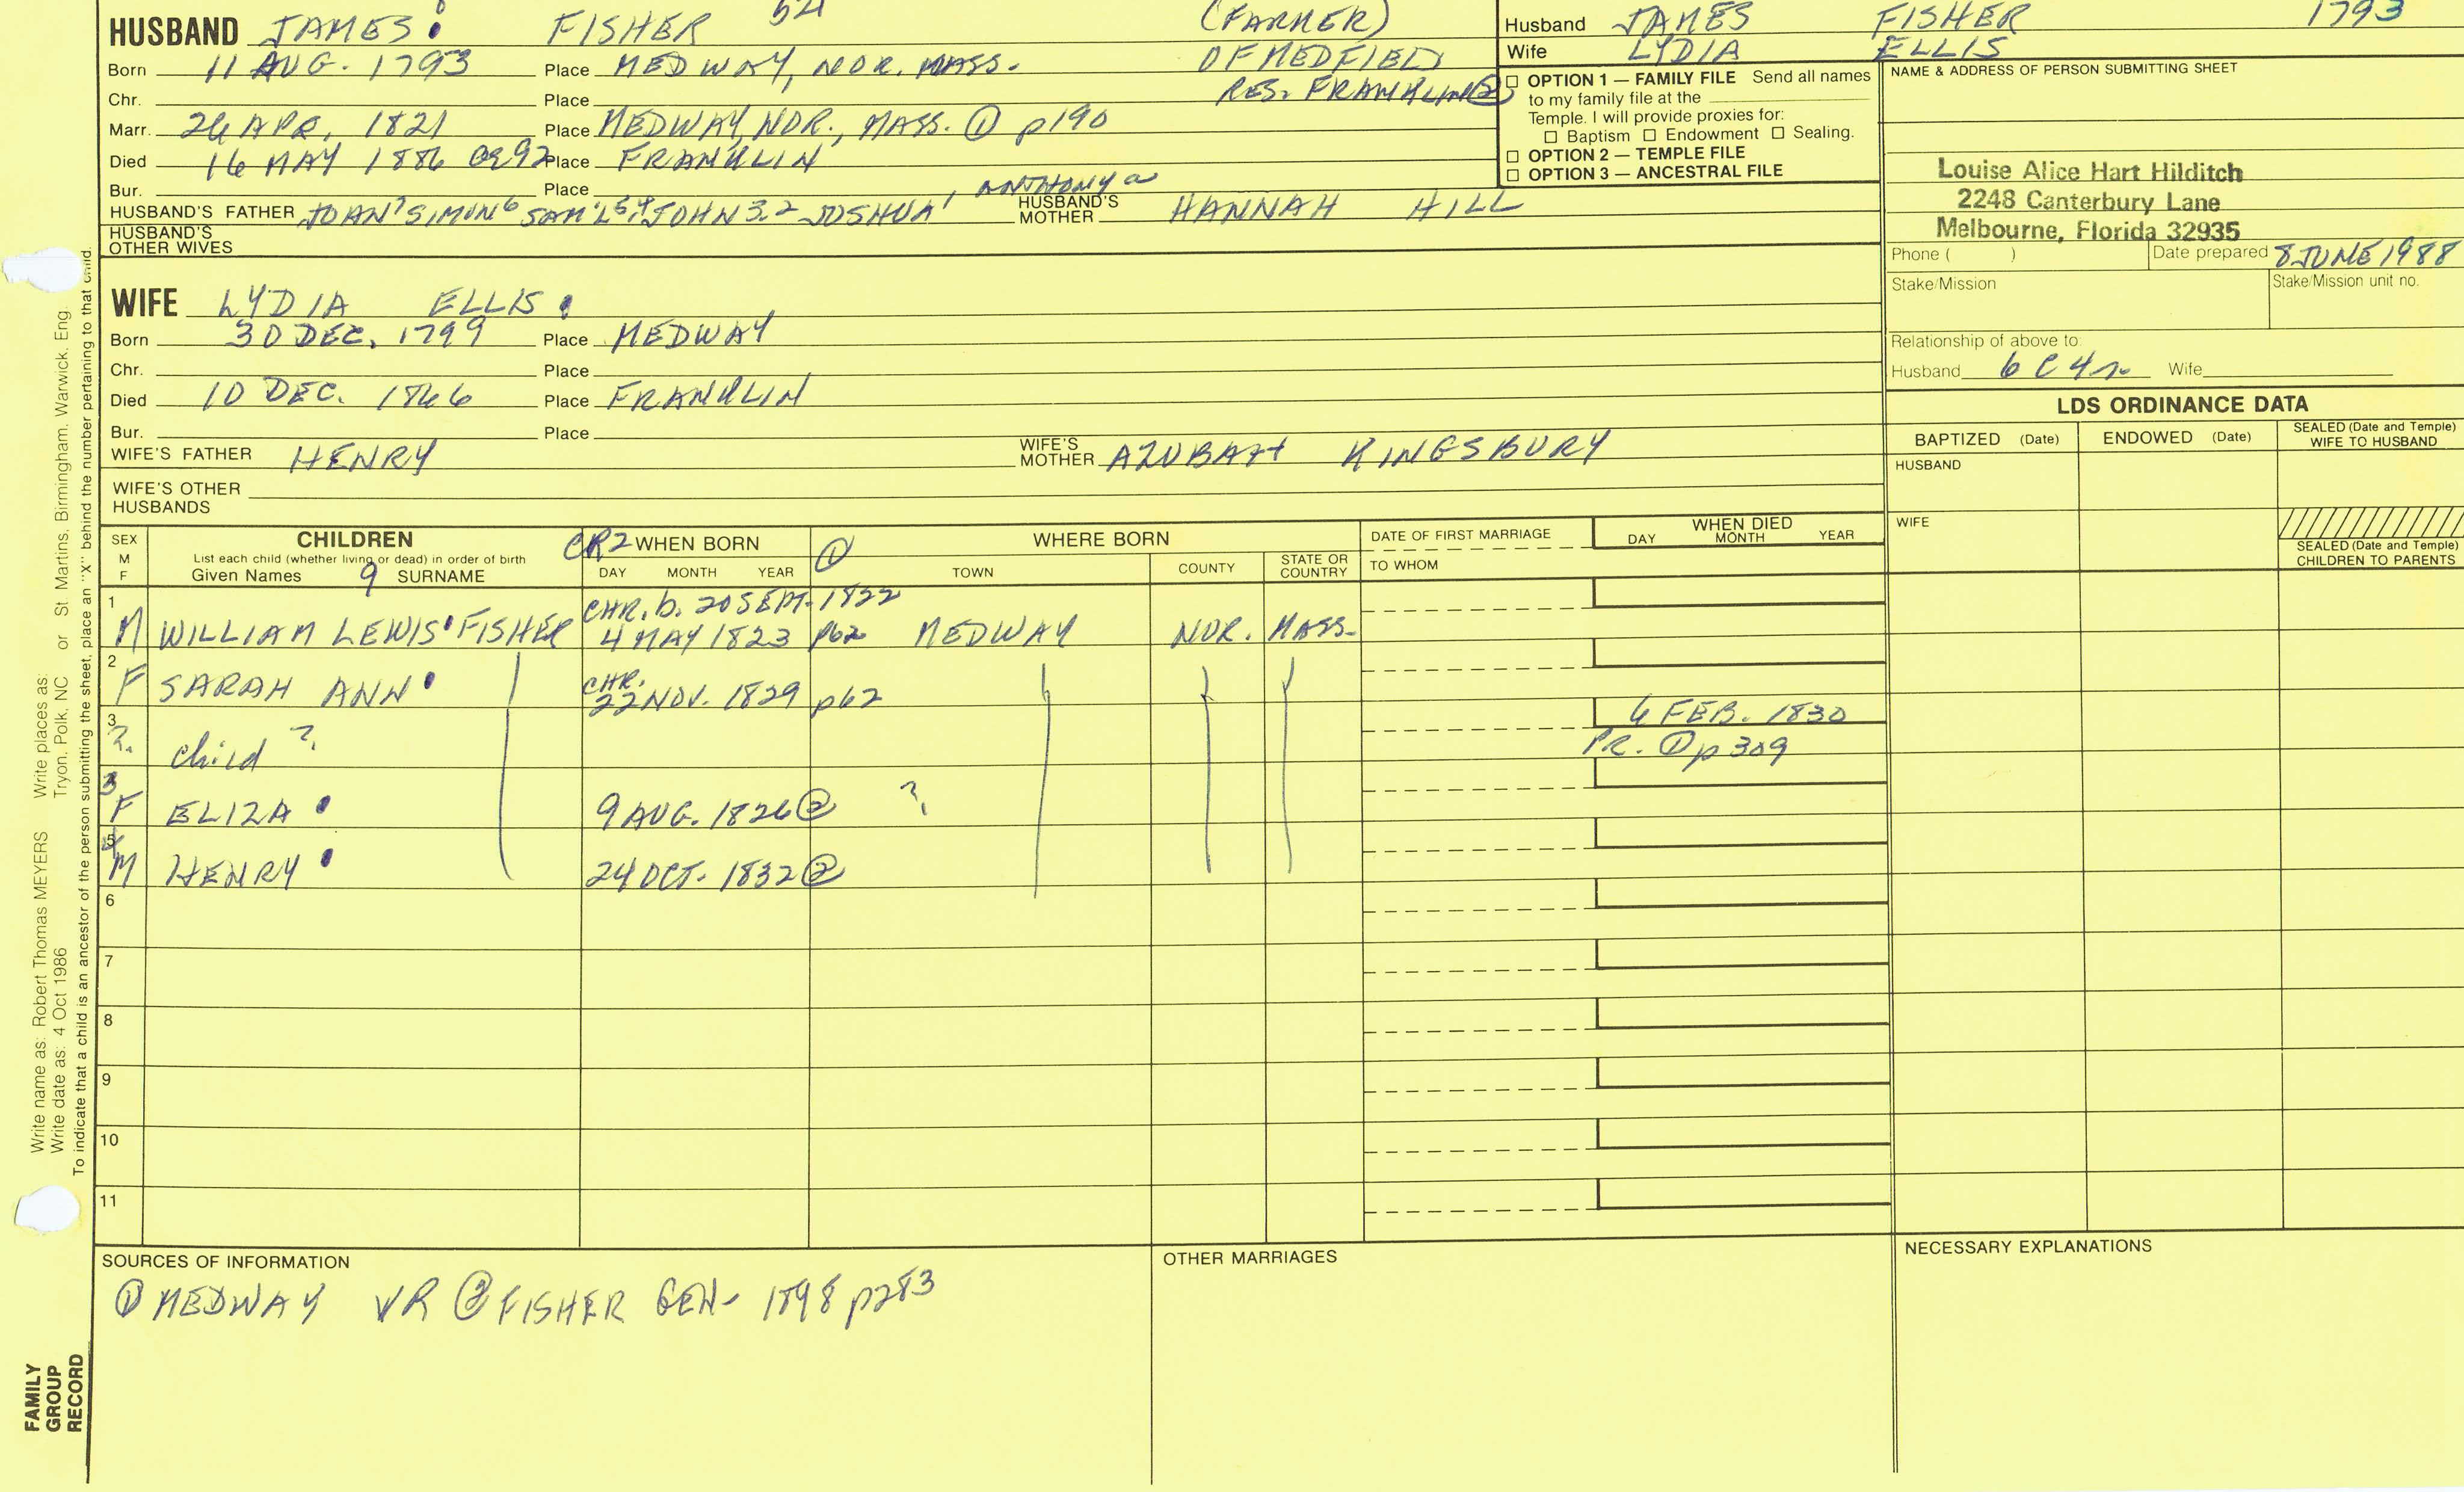 HUSBAND JAMES FISHER 54 (FARMER)
Born 11 AUG. 1793 Place MEDWAY, NOR. MASS. OF MEDFIELD
Chr. Place RES. FRANKLIN ②
Marr. 26 APR. 1821 Place MEDWAY, NOR., MASS. ① p190
Died 16 MAY 1886 ae 92 Place FRANKLIN
Bur. Place
HUSBAND'S FATHER JOAN⁷ SIMON⁶ SAM'L⁵,⁴ JOHN 3,2 JOSHUA¹, ANTHONY a HUSBAND'S MOTHER HANNAH HILL
HUSBAND'S OTHER WIVES
Husband JAMES FISHER 1793
Wife LYDIA ELLIS
OPTION 1 — FAMILY FILE Send all names
to my family file at the
Temple. I will provide proxies for:
Baptism Endowment Sealing.
OPTION 2 — TEMPLE FILE
OPTION 3 — ANCESTRAL FILE
NAME & ADDRESS OF PERSON SUBMITTING SHEET
Louise Alice Hart Hilditch
2248 Canterbury Lane
Melbourne, Florida 32935
Phone ( ) Date prepared 8 JUNE 1988
Stake/Mission Stake/Mission unit no.
Relationship of above to:
Husband 6C4r Wife
WIFE LYDIA ELLIS
Born 30 DEC. 1799 Place MEDWAY
Chr. Place
Died 10 DEC. 1866 Place FRANKLIN
Bur. Place
WIFE'S FATHER HENRY WIFE'S MOTHER AZUBAH KINGSBURY
WIFE'S OTHER
HUSBANDS
LDS ORDINANCE DATA
BAPTIZED (Date) ENDOWED (Date) SEALED (Date and Temple) WIFE TO HUSBAND
HUSBAND
WIFE
SEALED (Date and Temple)
CHILDREN TO PARENTS
SEX M F CHILDREN
List each child (whether living or dead) in order of birth
Given Names 9 SURNAME
CR2 WHEN BORN ①
DAY MONTH YEAR
WHERE BORN
TOWN COUNTY STATE OR COUNTRY
DATE OF FIRST MARRIAGE
TO WHOM
WHEN DIED
DAY MONTH YEAR
1 M WILLIAM LEWIS FISHER CHR. b. 20 SEPT. 1822
4 MAY 1823 p62 MEDWAY NOR. MASS.
2 F SARAH ANN CHR.
22 NOV. 1829 p62
3 ? child ? 6 FEB. 1830
PR. ① p309
3 F ELIZA 9 AUG. 1826 ② ?
5 M HENRY 24 OCT. 1832 ②
6
7
8
9
10
11
SOURCES OF INFORMATION
① MEDWAY VR ② FISHER GEN- 1898 p283
OTHER MARRIAGES
NECESSARY EXPLANATIONS
Write name as: Robert Thomas MEYERS Write places as: Tryon, Polk, NC or St Martins, Birmingham, Warwick, Eng.
Write date as: 4 Oct 1986
To indicate that a child is an ancestor of the person submitting the sheet, place an "X" behind the number pertaining to that child.
FAMILY
GROUP
RECORD